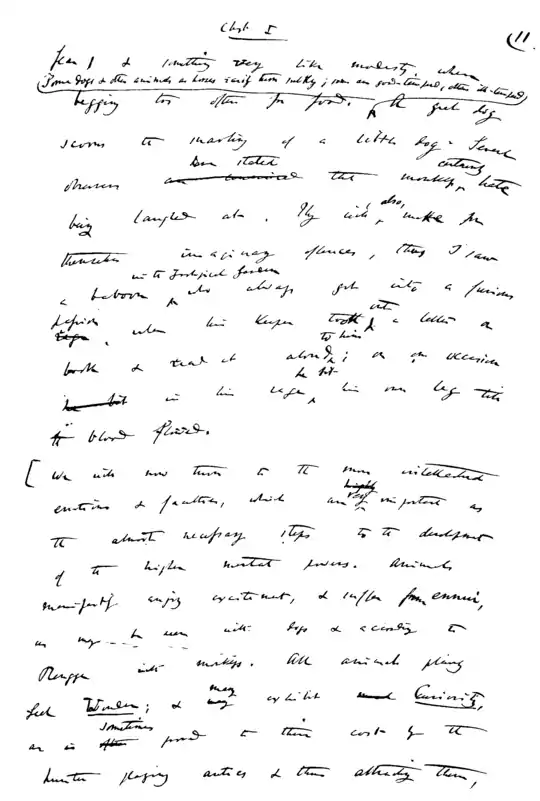 Chap I
11
fear & something very like modesty when
(Some dogs & other animals as horses easily turn sulky; some are good-tempered, others ill-tempered)
begging too often for food. A great dog
scorns the snarling of a little dog. Several
been stated certainly
observers that monkeys hate
being laughed at. They will, also, make for
themselves imaginary offences, thus I saw
in the Zoological Gardens
a baboon, who always got into a furious
out
passion, when his keeper took a letter or
to him
book & read it aloud; on an occasion
he bit
he bit in his rage, his own leg till
the blood flowed.
[We will now turn to the more intellectual
highly
emotions & faculties, which are very important as
the almost necessary steps to the development
of the higher mental powers. Animals
manifestly enjoy excitement, & suffer from ennui,
as may be seen with dogs & according to
Rengger with monkeys. All animals plainly
may
feel Wonder; & may exhibit Curiosity,
sometimes
as is often proved to their cost by the
hunter playing antics & thus attracting them,